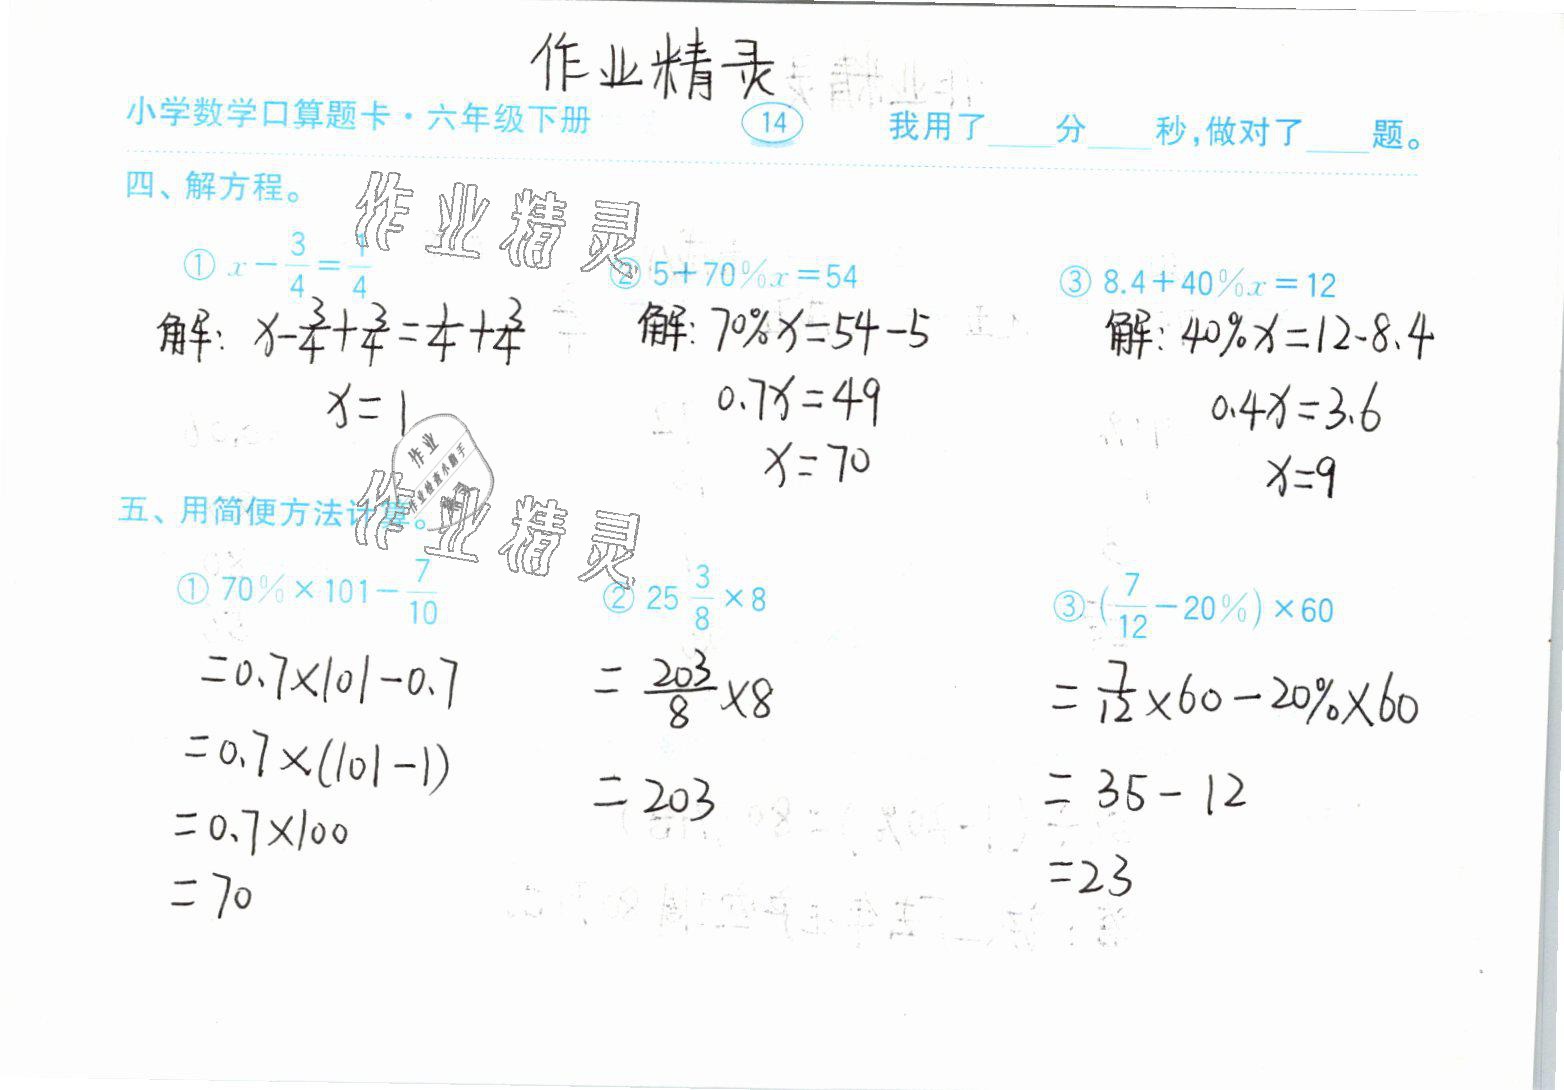 作业精灵
小学数学口算题卡·六年级下册 14 我用了____分____秒,做对了____题。
四、解方程。
作业精灵
① x-3/4=1/4 ② 5+70%x=54 ③ 8.4+40%x=12
解: x-3/4+3/4=1/4+3/4 解: 70%x=54-5 解: 40%x=12-8.4
x=1 0.7x=49 0.4x=3.6
x=70 x=9
作业
作业检查小助手
五、用简便方法计算。
作业精灵
① 70%×101-7/10 ② 25 3/8×8 ③ (7/12-20%)×60
=0.7×101-0.7 =203/8×8 =7/12×60-20%×60
=0.7×(101-1) =203 =35-12
=0.7×100 =23
=70